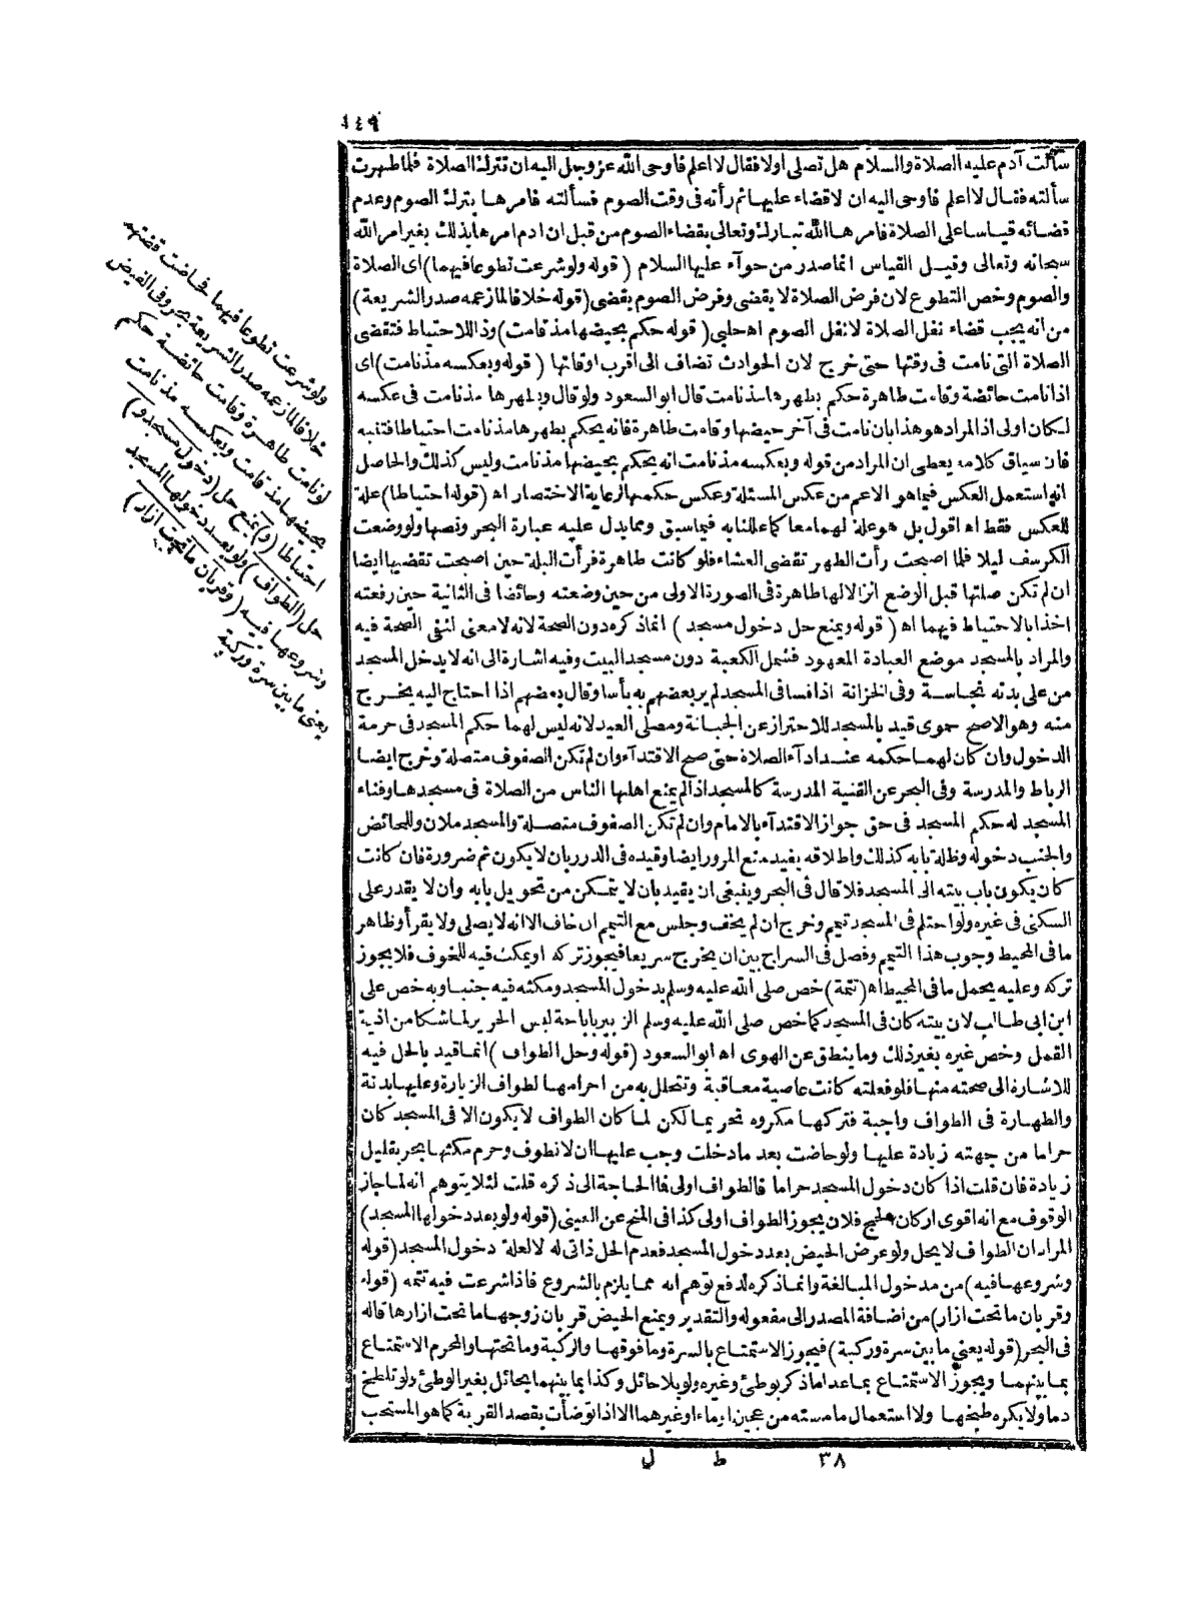 ٤٤٩
سألت آدم عليه الصلاة والسلام هل تصلى اولا فقال لا اعلم فاوحى الله عز وجل اليه ان تترك الصلاة فلما طهرت
سألته فقال لا اعلم فاوحى اليه ان لا قضاء عليها ثم رأته فى وقت الصوم فسألته فامرها بترك الصوم وعدم
قضائه قياسا على الصلاة فامرها الله تبارك وتعالى بقضاء الصوم من قبل ان ادم امرها بذلك بغير امر الله
سبحانه وتعالى وقيل القياس انما صدر من حوآء عليها السلام (قوله ولو شرعت تطوعا فيهما) اى الصلاة
والصوم وخص التطوع لان فرض الصلاة لا يقضى وفرض الصوم يقضى (قوله خلافا لما زعمه صدر الشريعة)
من انه يجب قضاء نفل الصلاة لا نفل الصوم اه حلبى (قوله حكم بحيضها مذ قامت) وذا للاحتياط فتقضى
الصلاة التى نامت فى وقتها حتى خرج لان الحوادث تضاف الى اقرب اوقاتها (قوله وبعكسه مذ نامت) اى
اذا نامت حائضة وقامت طاهرة حكم بطهرها مذ نامت قال ابو السعود ولو قال وبطهرها مذ نامت فى عكسه
لكان اولى اذ المراد هو هذا بان نامت فى آخر حيضها وقامت طاهرة فانه يحكم بطهرها مذ نامت احتياطا فتنبه
فان سياق كلامه يعطى ان المراد من قوله وبعكسه مذ نامت انه يحكم بحيضها مذ نامت وليس كذلك والحاصل
انه استعمل العكس فيما هو الاعم من عكس المسئلة وعكس حكمها لرعاية الاختصار اه (قوله احتياطا) علة
للعكس فقط اه اقول بل هو علة لهما معا كما عللنا به فيما سبق ومما يدل عليه عبارة البحر ونصها ولو وضعت
الكرسف ليلا فلما اصبحت رأت الطهر تقضى العشاء فلو كانت طاهرة فرأت البلة حين اصبحت تقضيها ايضا
ان لم تكن صلتها قبل الوضع انزالا لها طاهرة فى الصورة الاولى من حين وضعته وحائضا فى الثانية حين رفعته
اخذا بالاحتياط فيهما اه (قوله ويمنع حل دخول مسجد) انما ذكره دون الصحة لانه لا معنى لنفى الصحة فيه
والمراد بالمسجد موضع العبادة المعهود فشمل الكعبة دون مسجد البيت وفيه اشارة الى انه لا يدخل المسجد
من على بدنه نجاسة وفى الخزانة اذا فسا فى المسجد لم ير بعضهم به بأسا وقال بعضهم اذا احتاج اليه يخرج
منه وهو الاصح حموى قيد بالمسجد للاحتراز عن الجبانة ومصلى العيد لانه ليس لهما حكم المسجد فى حرمة
الدخول وان كان لهما حكمه عند ادآء الصلاة حتى صح الاقتدآء وان لم تكن الصفوف متصلة وخرج ايضا
الرباط والمدرسة وفى البحر عن القنية المدرسة كالمسجد اذا لم يمنع اهلها الناس من الصلاة فى مسجدها وفناء
المسجد له حكم المسجد فى حق جواز الاقتدآء بالامام وان لم تكن الصفوف متصلة والمسجد ملان وللحائض
والجنب دخوله وظلة بابه كذلك واطلاقه يفيد منع المرور ايضا وقيده فى الدرر بان لا يكون ثم ضرورة فان كانت
كان يكون باب بيته الى المسجد فلا قال فى البحر وينبغى ان يقيد بان لا يتمكن من تحويل بابه وان لا يقدر على
السكنى فى غيره ولو احتلم فى المسجد تيمم وخرج ان لم يخف وجلس مع التيمم ان خاف الا انه لا يصلى ولا يقرأ وظاهر
ما فى المحيط وجوب هذا التيمم وفصل فى السراج بين ان يخرج سريعا فيجوز تركه او يمكث فيه للخوف فلا يجوز
تركه وعليه يحمل ما فى المحيط اه (تتمة) خص صلى الله عليه وسلم بدخول المسجد ومكثه فيه جنبا وبه خص على
ابن ابى طالب لان بيته كان فى المسجد كما خص صلى الله عليه وسلم الزبير باباحة لبس الحرير لما شكا من اذية
القمل وخص غيره بغير ذلك وما ينطق عن الهوى اه ابو السعود (قوله وحل الطواف) انما قيد بالحل فيه
للاشارة الى صحته منها فلو فعلته كانت عاصية معاقبة وتتحلل به من احرامها لطواف الزيارة وعليها بدنة
والطهارة فى الطواف واجبة فتركها مكروه تحريما لكن لما كان الطواف لا يكون الا فى المسجد كان
حراما من جهته زيادة عليها ولو حاضت بعد ما دخلت وجب عليها ان لا تطوف وحرم مكثها بحر بقليل
زيادة فان قلت اذا كان دخول المسجد حراما فالطواف اولى فما الحاجة الى ذكره قلت لئلا يتوهم انه لما جاز
الوقوف مع انه اقوى اركان الحج فلان يجوز الطواف اولى كذا فى المنح عن العينى (قوله ولو بعد دخولها المسجد)
المراد ان الطواف لا يحل ولو عرض الحيض بعد دخول المسجد فعدم الحل ذاتى له لا لعلة دخول المسجد (قوله
وشروعها فيه) من مدخول المبالغة وانما ذكره لدفع توهم انه مما يلزم بالشروع فاذا شرعت فيه تتمه (قوله
وقربان ما تحت ازار) من اضافة المصدر الى مفعوله والتقدير ويمنع الحيض قربان زوجها ما تحت ازارها قاله
فى البحر (قوله يعنى ما بين سرة وركبة) فيجوز الاستمتاع بالسرة وما فوقها والركبة وما تحتها والمحرم الاستمتاع
بما بينهما ويجوز الاستمتاع بما عدا ما ذكر بوطئ وغيره ولو بلا حائل وكذا بما بينهما بحائل بغير الوطئ ولو تلطخ
دما ولا يكره طبخها ولا استعمال ما مسته من عجين او ماء او غيرهما الا اذا توضأت بقصد القربة كما هو المستحب
ولو شرعت تطوعا فيهما فحاضت قضتهما
خلافا لما زعمه صدر الشريعة بحر وفى الفيض
لو نامت طاهرة وقامت حائضة حكم
بحيضها مذ قامت وبعكسه مذ نامت
احتياطا (و) يمنع حل (دخول مسجد و)
حل (الطواف) ولو بعد دخولها المسجد
وشروعها فيه (وقربان ما تحت ازار)
يعنى ما بين سرة وركبة
٣٨ ط ل